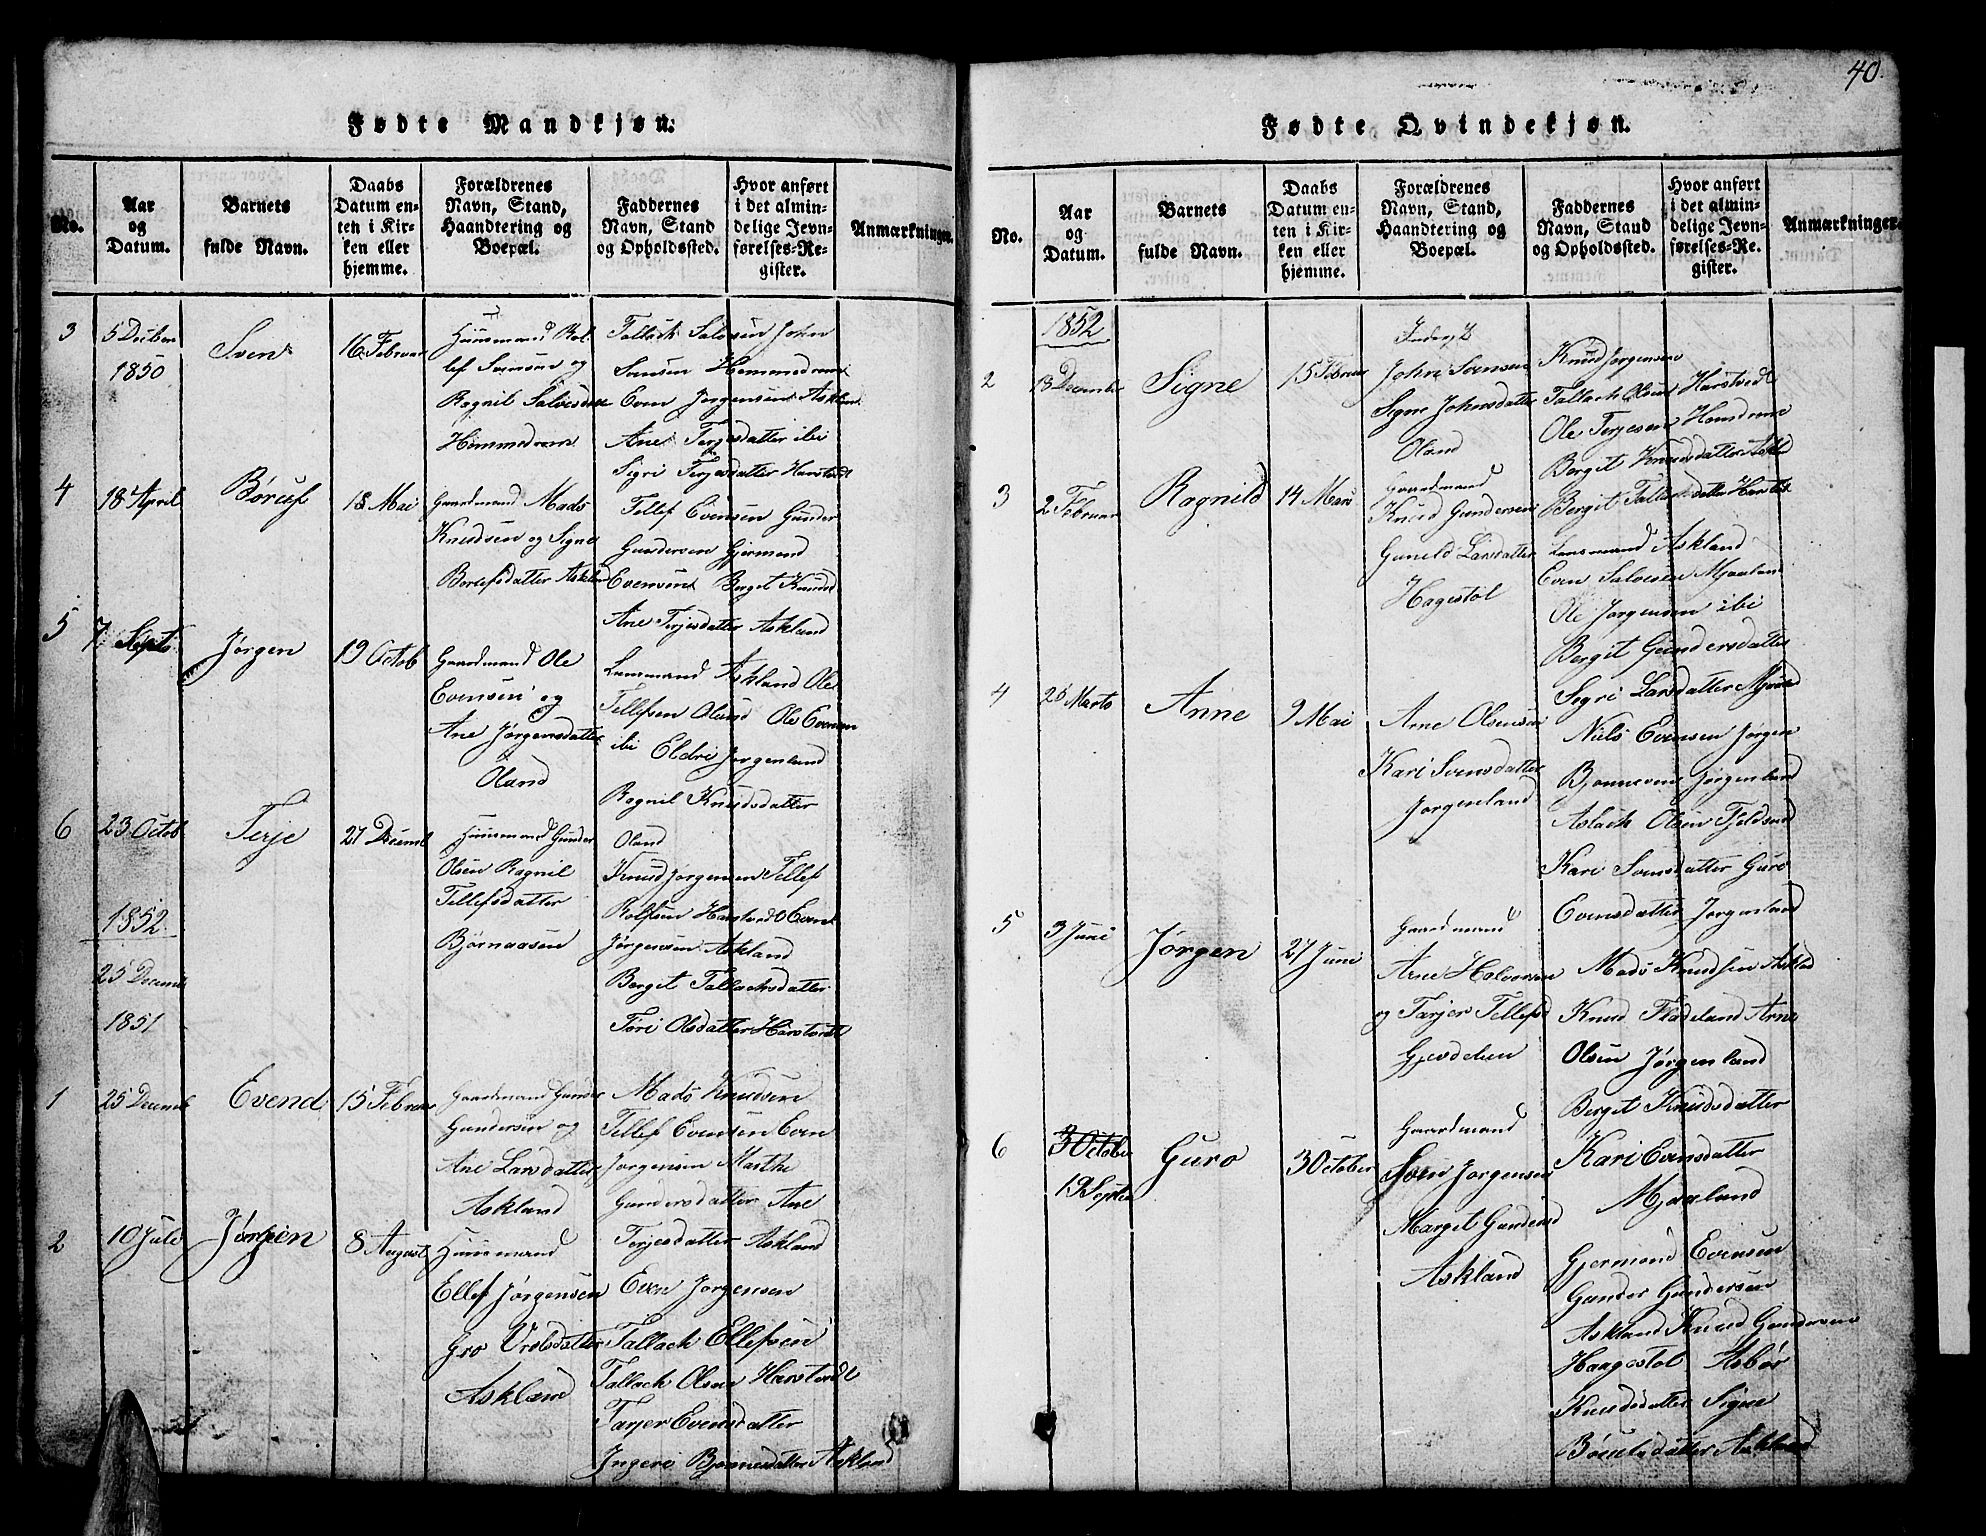 40.
Fødte Mandkjøn:
No.
Aar og Datum.
Barnets fulde Navn.
Daabs Datum enten i Kirken eller hjemme.
Forældrenes Navn, Stand, Haandtering og Boepæl.
Faddernes Navn, Stand og Opholdssted.
Hvor anført i det almindelige Jevnførelses-Register.
Anmærkninger.
3
5 Decber
1850
Sven
16 Februar
Huusmand Rol
lef Svensen og
Ragnil Salvesdatter
Hemmedrom
Tallach Salvesen John
Svensen Hemmedrom
Even Jørgensen Asklan
Ane Terjesdatter ibi
Sigri Terjesdatter Harstvedt
4
18 April
Børuf
18 Mai
Gaardmand Mads
Knudsen og Signe
Borufsdatter Asklan
Tellef Evensen Gunder
Gundersen Gjermund
Evensen Berget Knuds
Ane Terjesdatter Askland
5
7 Sept
Jørgen
19 Octob
Gaardmand Ole
Evensen og
Ane Jørgensdatter
Oland
Lensmand Askland Ole
Tellefsen Oland Ole Evensen
ibi Eldri Jørgenland
Ragnil Knudsdatter
Oland
6
23 Octob
Terje
27 Decemb
Huusmand Gunder
Olsen Ragnil
Tellefsdatter
Bjørnaasen
Knud Jørgensen Tellef
Rolfsen Harstvedt Even
Jørgensen Askland
Berget Tallachsdatter
Tori Olsdatter Harstvedt
1852
25 Decemb
1851
1
25 Decemb
Evend
15 Februar
Gaardmand Gunder
Gundersen og
Ane Larsdatter
Askland
Mads Knudsen
Tellef Evensen Even
Jørgensen Marthe
Gundersdatter Ane
Terjesdatter Askland
2
10 Juli
Jørgen
8 August
Huusmand
Ellef Jørgensen
Gro
Askland
Even Jørgensen
Tallach Ellefsen
Tallach Olsen Harstvedt
Tarjer Evensdatter
Ingeri Bjønnesdatter Askland
Fødte Qvindekjøn.
No.
Aar og Datum.
Barnets fulde Navn.
Daabs Datum enten i Kirken eller hjemme.
Forældrenes Navn, Stand, Haandtering og Boepæl.
Faddernes Navn, Stand og Opholdssted.
Hvor anført i det almindelige Jevnførelses-Register.
Anmærkninger.
1852
2
13 December
Signe
15 Februar
Inderst
John Svensen
Signe Johnsdatter
Oland
Knud Jørgensen
Tallach Olsen Harstvedt
Ole Terjesen Homdrom
Bergit Knudsdatter Askla
Bergit Tallachsdatter Harstvedt
3
2 Februar
Ragnild
14 Mars
Gaardmand
Knud Gundersen
Gunild Larsdatter
Hagestøl
Lensmand Askland
Even Salvesen Mjaaland
Ole Jørgensen ibi
Bergit Gundersdatter
Sigri Larsdatter
4
25 Marts
Anne
9 Mai
Arne Olsensen
Kari Svensdatter
Jørgenland
Niels Evensen Jørgen
Jørgenland
Aslach Olsen Fjeldsund
Kari Svensdatter Guro
Evensdatter Jørgenland
5
3 Juni
Jørgen
27 Juni
Gaardmand
Arne Halvorsen
og Tarjer Tellefsd
Gjevdelien
Mads Knudsen Asklad
Knud Fladeland Arne
Olsen Jørgenland
Berget Knudsdatter
Kari Evensdatter
Mjaaland
6
3 October
19 Septem
Guro
3 October
Gaardmand
Sven Jørgensen
Marget Gundersd
Askland
Gjermund Evensen
Gunder Gundersen
Askland Knud Gundersen
Haagestøl Asbør
Knudsdatter Signe
Børulsdatter Askland